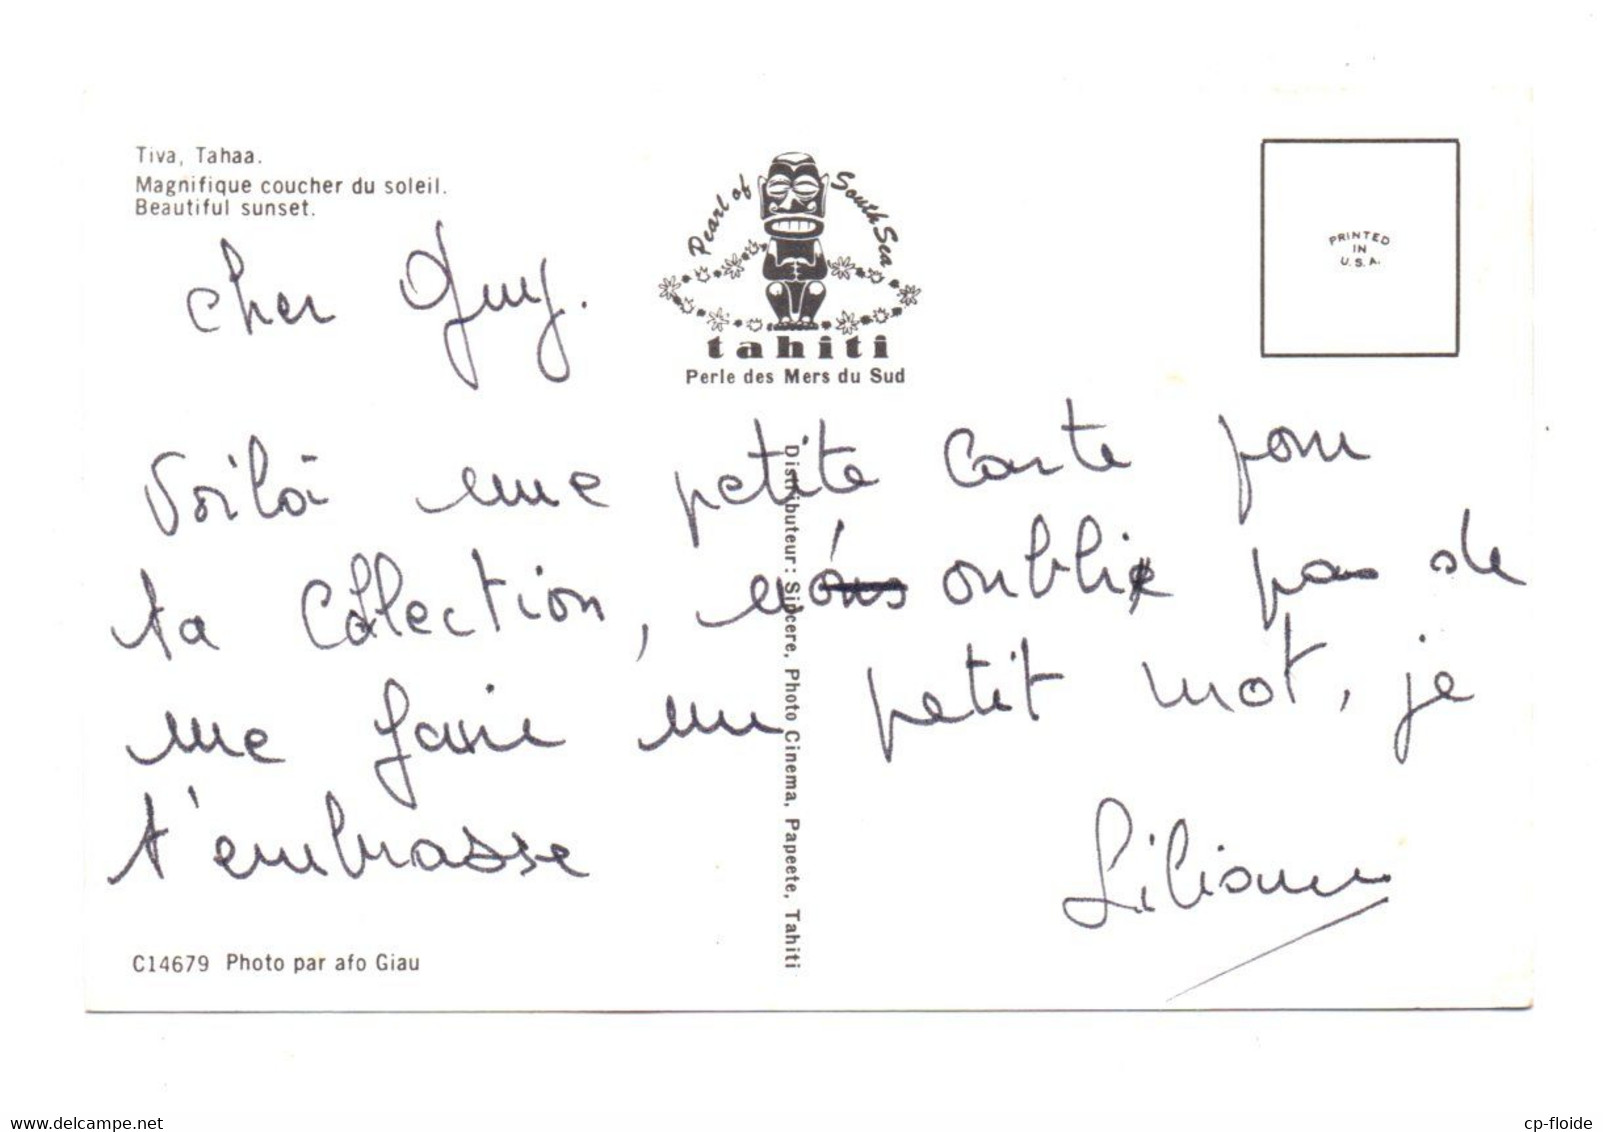 Tiva, Tahaa.
Magnifique coucher du soleil.
Beautiful sunset.
Pearl of South Sea
tahiti
Perle des Mers du Sud
PRINTED
IN
U.S.A.
Cher Guy.
Voilà une petite carte pour
ta Collection, n'oublie pas de
me faire un petit mot, je
t'embrasse
Liliane
Distributeur: Sincere, Photo Cinema, Papeete, Tahiti
C14679 Photo par afo Giau
www.delcampe.net
cp-floide